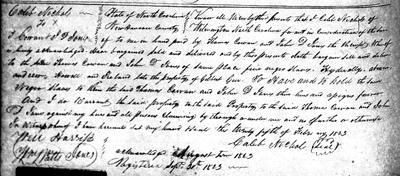 Caleb Nichol
to
T Cowan & J D Jones
State of North Carolina
New Hanover County
Know all Men by these presents that I Caleb Nichols of
Wilmington North Carolina for and in consideration of the sum
to me in hand paid by Thomas Cowan and John D Jones the receipt Whereof
is hereby acknowledged have bargained sold and delivered and by these presents doth bargain sell and deliver
to the said Thomas Cowan and John D Jones of same place four negro slaves
and Richard late the property of To Have and to hold the said
Negro Slaves to them the said Thomas Cowan and John D Jones their heirs and assigns forever
And I do Warrant the said property to the said Thomas Cowan and John
D Jones against my heirs and all persons claiming by through or under me and no farther or otherwise
In witness whereof I have hereunto set my hand & seal the twenty fifth of February 1803
Caleb Nichol (Seal)
acknowledged August term 1803
Registered Sept 30th 1803